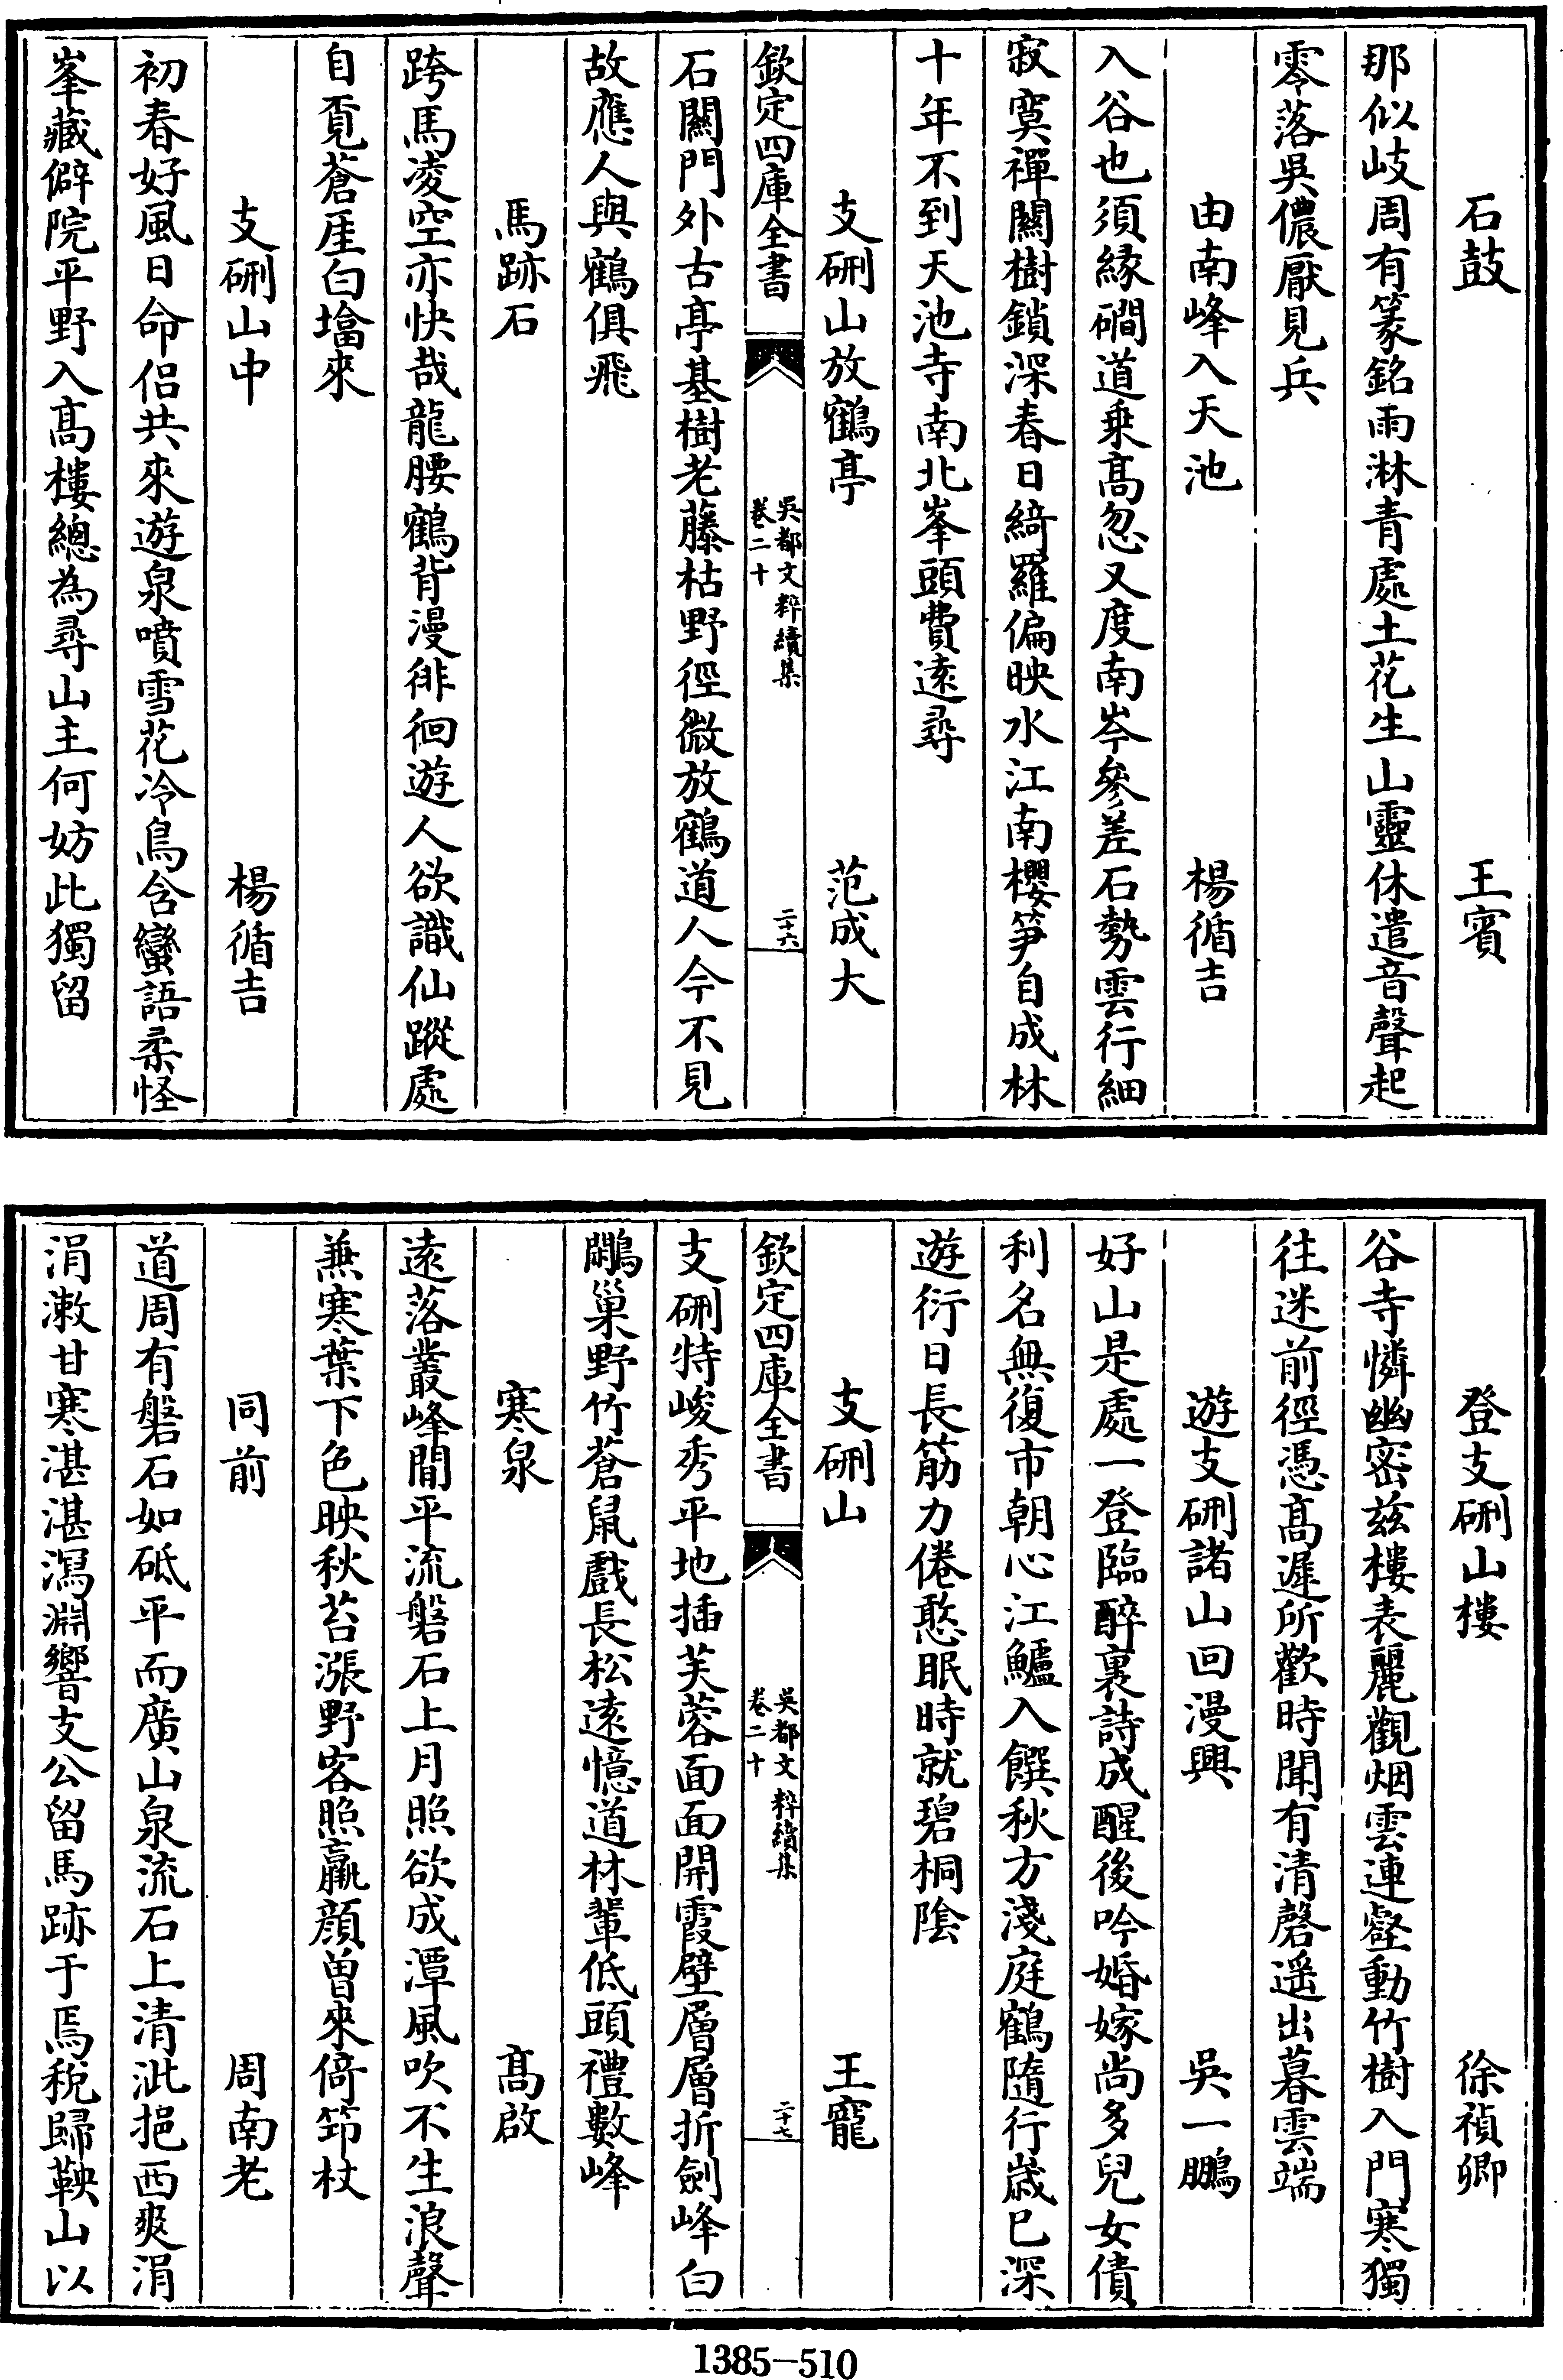 石鼓 王賓
那似岐周有篆銘雨淋青處土花生山靈休遣音聲起
零落吳儂厭見兵
由南峰入天池 楊循吉
入谷也須緣磵道乗髙忽又度南岑參差石勢雲行細
寂寞禪關樹鎖深春日綺羅偏映水江南櫻笋自成林
十年不到天池寺南北峯頭費逺尋
支硎山放鶴亭 范成大
欽定四庫全書 吳都文粹續集 卷二十 二十六
石闗門外古亭基樹老藤枯野徑微放鶴道人今不見
故應人與鶴俱飛
馬跡石
跨馬凌空亦快哉龍腰鶴背漫徘徊遊人欲識仙蹤處
自覔蒼厓白墖來
支硎山中 楊循吉
初春好風日命侣共來遊泉噴雪花冷鳥含蠻語柔怪
峯藏僻院平野入髙樓總為尋山主何妨此獨留
登支硎山樓 徐禎卿
谷寺憐幽密兹樓表麗觀烟雲連壑動竹樹入門寒獨
往迷前徑憑髙遲所歡時聞有清磬遥出暮雲端
遊支硎諸山回漫興 吳一鵬
好山是處一登臨醉裏詩成醒後吟婚嫁尚多兒女債
利名無復市朝心江鱸入饌秋方淺庭鶴隨行歳已深
遊衍日長筋力倦憨眠時就碧桐陰
支硎山 王寵
欽定四庫全書 吳都文粹續集 卷二十 二十七
支硎特峻秀平地插芙蓉面面開霞壁層層折劍峰白
鷴巢野竹蒼鼠戲長松逺憶道林輩低頭禮數峰
寒泉 髙啟
逺落叢峰間平流磐石上月照欲成潭風吹不生浪聲
兼寒葉下色映秋苔漲野客照羸顔曽來倚笻杖
同前 周南老
道周有磐石如砥平而廣山泉流石上清泚挹西爽涓
涓漱甘寒湛湛瀉淵響支公留馬跡于焉稅歸鞅山以
1385-510